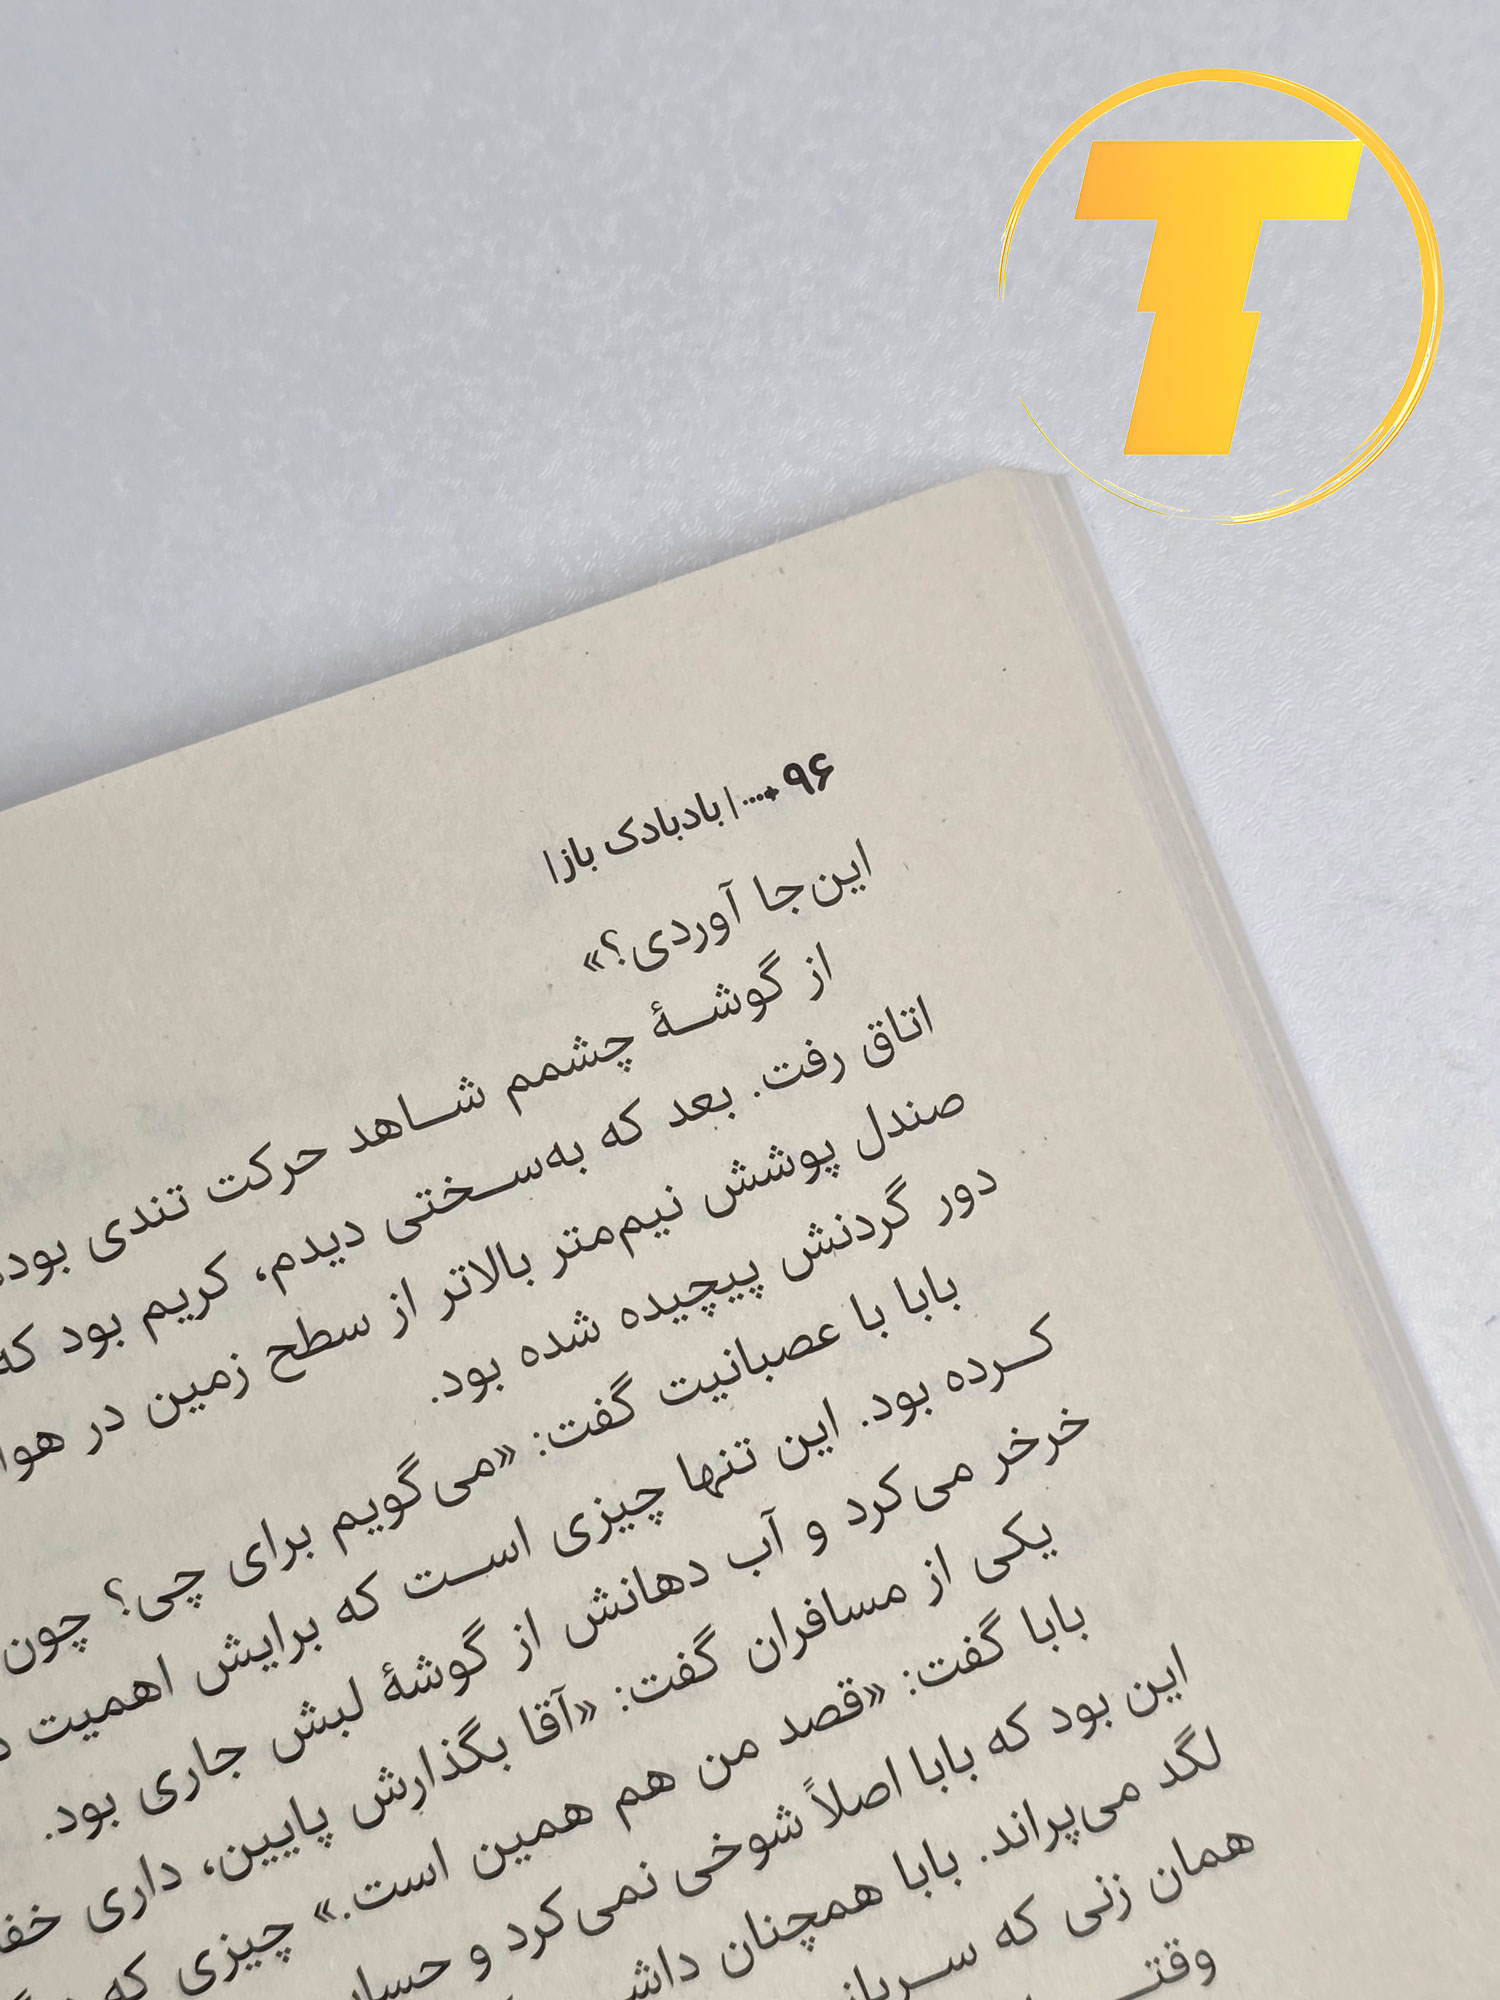 T
۹۶ •••• | بادبادک باز |
این‌جا آوردی؟»
از گوشهٔ چشمم شاهد حرکت تندی بوده
اتاق رفت. بعد که به‌سختی دیدم، کریم بود که
صندل پوشش نیم‌متر بالاتر از سطح زمین در هوا
دور گردنش پیچیده شده بود.
بابا با عصبانیت گفت: «می‌گویم برای چی؟ چون
کرده بود. این تنها چیزی است که برایش اهمیت
خرخر می‌کرد و آب دهانش از گوشهٔ لبش جاری بود.
یکی از مسافران گفت: «آقا بگذارش پایین، داری
بابا گفت: «قصد من هم همین است.» چیزی که
این بود که بابا اصلاً شوخی نمی‌کرد و
لگد می‌پراند. بابا همچنان
همان زنی که